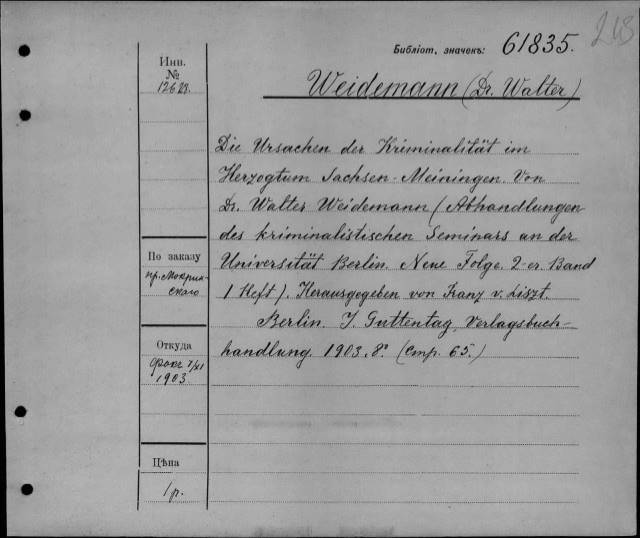 248
Библіот. значекъ: 61835.
Инв.
№
Weidemann (Dr. Walter)
Die Ursachen der Kriminalität im
Herzogtum Sachsen-Meiningen. Von
Dr. Walter Weidemann (Abhandlungen
des kriminalistischen Seminars an der
Universität Berlin. Neue Folge. 2-er. Band
1 Heft). Herausgegeben von Franz v. Liszt.
Berlin. J. Guttentag, Verlagsbuch-
handlung. 1903. 8°. (стр. 65.)
По заказу
пр. Мокрин-
скаго
Откуда
Фокъ 7/XI
1903
Цѣна
1 р.